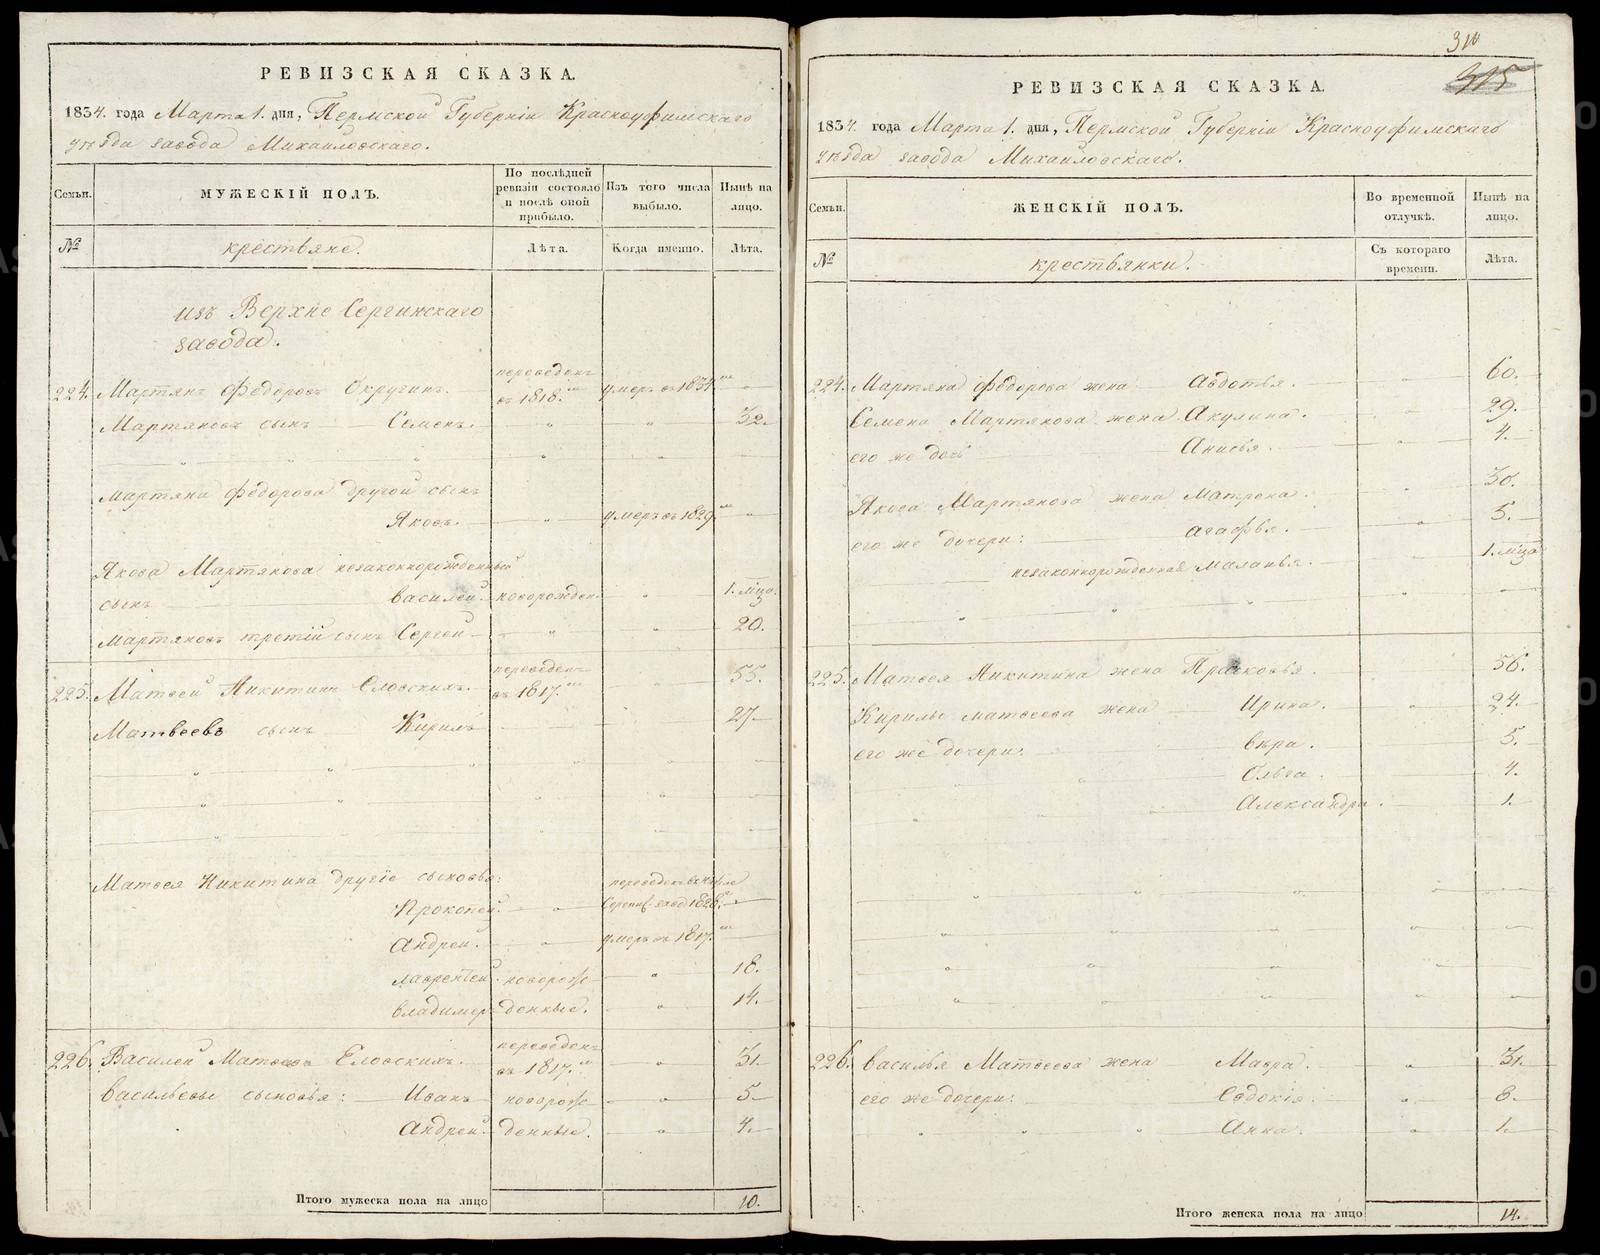 РЕВИЗСКАЯ СКАЗКА.
1834. года Марта 1. дня, Пермской Губерніи Красноуфимскаго
уѣзда завода Михайловскаго.
Семьи. МУЖЕСКІЙ ПОЛЪ. По послѣдней ревизіи состояло и послѣ оной прибыло. Изъ того числа выбыло. Нынѣ на лицо.
№ крестьяне. Лѣта. Когда именно. Лѣта.
изъ Верхне Сергинскаго
завода.
224. Мартынъ Федоровъ Округинъ. переведенъ въ 1818. умеръ въ 1834.
Мартяновъ сынъ Семенъ. 32.
Мартяна Федорова другой сынъ
Яковъ. умеръ въ 1829.
Якова Мартянова незаконнорожденный
сынъ Василей. новорожден. 1. мѣсц.
Мартяновъ третій сынъ Сергей 20.
225. Матвей Никитинъ Еловскихъ. переведенъ въ 1817. 55.
Матвеевъ сынъ Кирилъ 27.
Матвея Никитина другіе сыновья:
Прокопей. завод 1828.
Андрей. умеръ въ 1817.
Лаврентей. новорож- 18.
Владимеръ денные. 14.
226. Василей Матвеевъ Еловскихъ. переведенъ въ 1817. 31.
Васильевы сыновья: Иванъ новорож- 5.
Андрей денные. 4.
Итого мужеска пола на лицо 10.
310
315
РЕВИЗСКАЯ СКАЗКА.
1834. года Марта 1. дня, Пермской Губерніи Красноуфимскаго
уѣзда завода Михайловскаго.
Семьи. ЖЕНСКІЙ ПОЛЪ. Во временной отлучкѣ. Нынѣ на лицо.
№ крестьянки. Съ котораго времени. Лѣта.
224. Мартяна Федорова жена Авдотья. 60.
Семена Мартянова жена Акулина. 29.
его же дочь Анисья. 4.
Якова Мартянова жена Матрена. 30.
его же дочери: Агафья. 5.
незаконнорожденная Маланья. 1. мѣсца
225. Матвея Никитина жена Прасковья. 56.
Кирилы Матвеева жена Ирина. 24.
его же дочери: Вѣра. 5.
Ольга. 4.
Александра. 1.
226. Василья Матвеева жена Мавра. 31.
его же дочери: Евдокія. 6.
Анна. 1.
Итого женска пола на лицо 14.